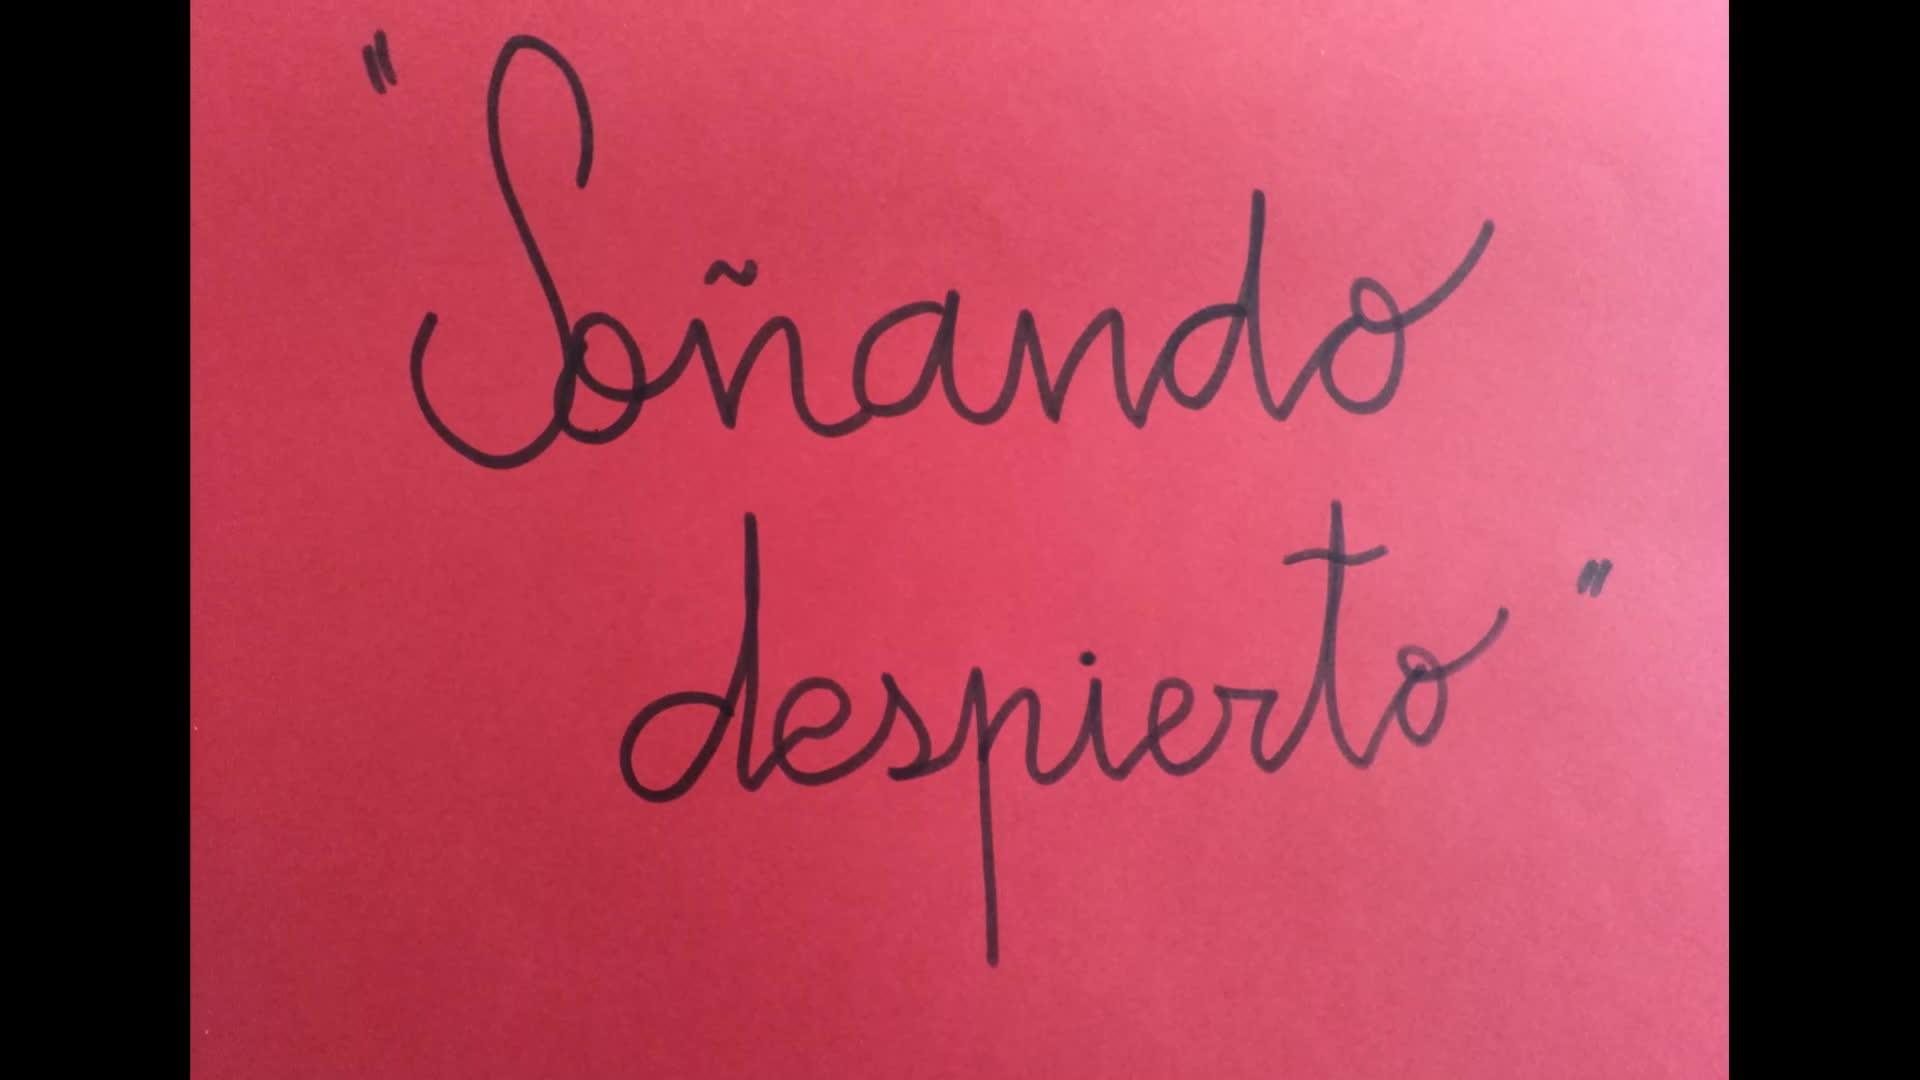 "Soñando
despierto"